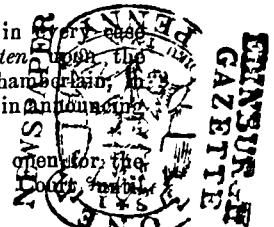 in every case
ten upon the
hamberlain, in
in announcing
open for the
Court until
NEWSPAPER
PENNY
EDINBURGH
GAZETTE